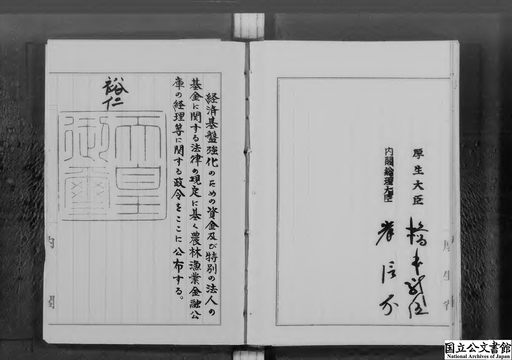 厚生大臣
橋本龍伍
内閣総理大臣
岸信介
経済基盤強化のための資金及び特別の法人の
基金に関する法律の規定に基く農林漁業金融公
庫の経理等に関する政令をここに公布する。
裕仁
天皇
御璽
国立公文書館
National Archives of Japan